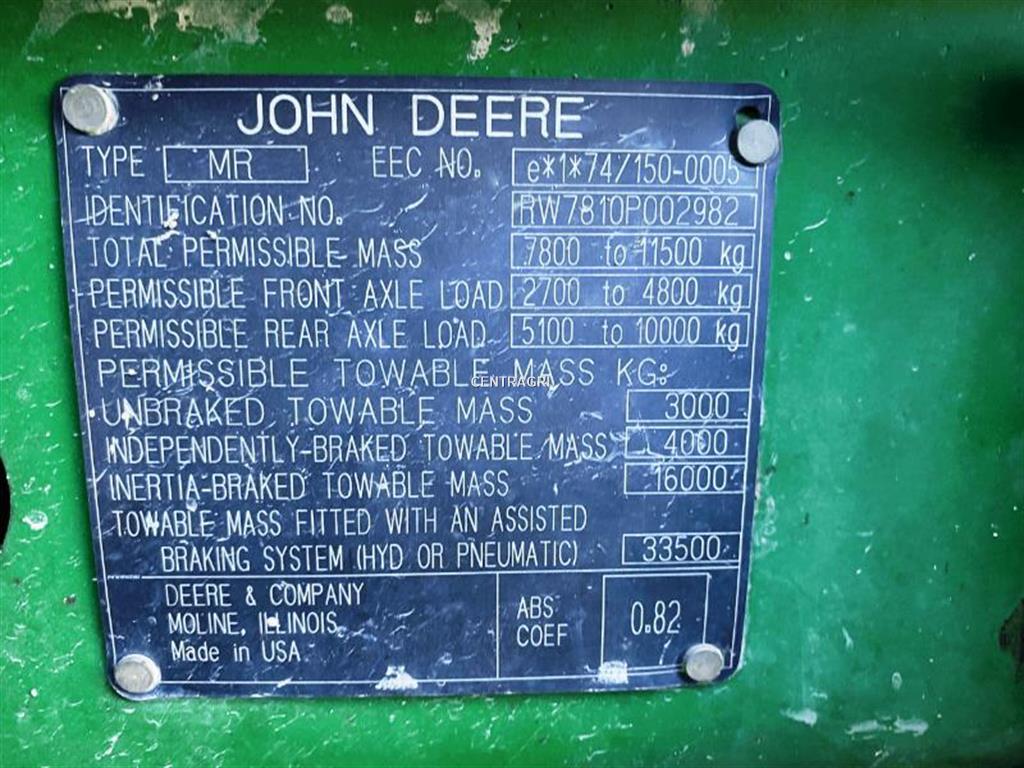 JOHN DEERE
TYPE MR EEC NO. e*1*74/150-0005
IDENTIFICATION NO. RW7810P002982
TOTAL PERMISSIBLE MASS 7800 to 11500 kg
PERMISSIBLE FRONT AXLE LOAD 2700 to 4800 kg
PERMISSIBLE REAR AXLE LOAD 5100 to 10000 kg
PERMISSIBLE TOWABLE MASS KG:
CENTRAGRI
UNBRAKED TOWABLE MASS 3000
INDEPENDENTLY-BRAKED TOWABLE MASS 4000
INERTIA-BRAKED TOWABLE MASS 16000
TOWABLE MASS FITTED WITH AN ASSISTED
BRAKING SYSTEM (HYD OR PNEUMATIC) 33500
DEERE & COMPANY
MOLINE, ILLINOIS
Made in USA
ABS
COEF
0.82